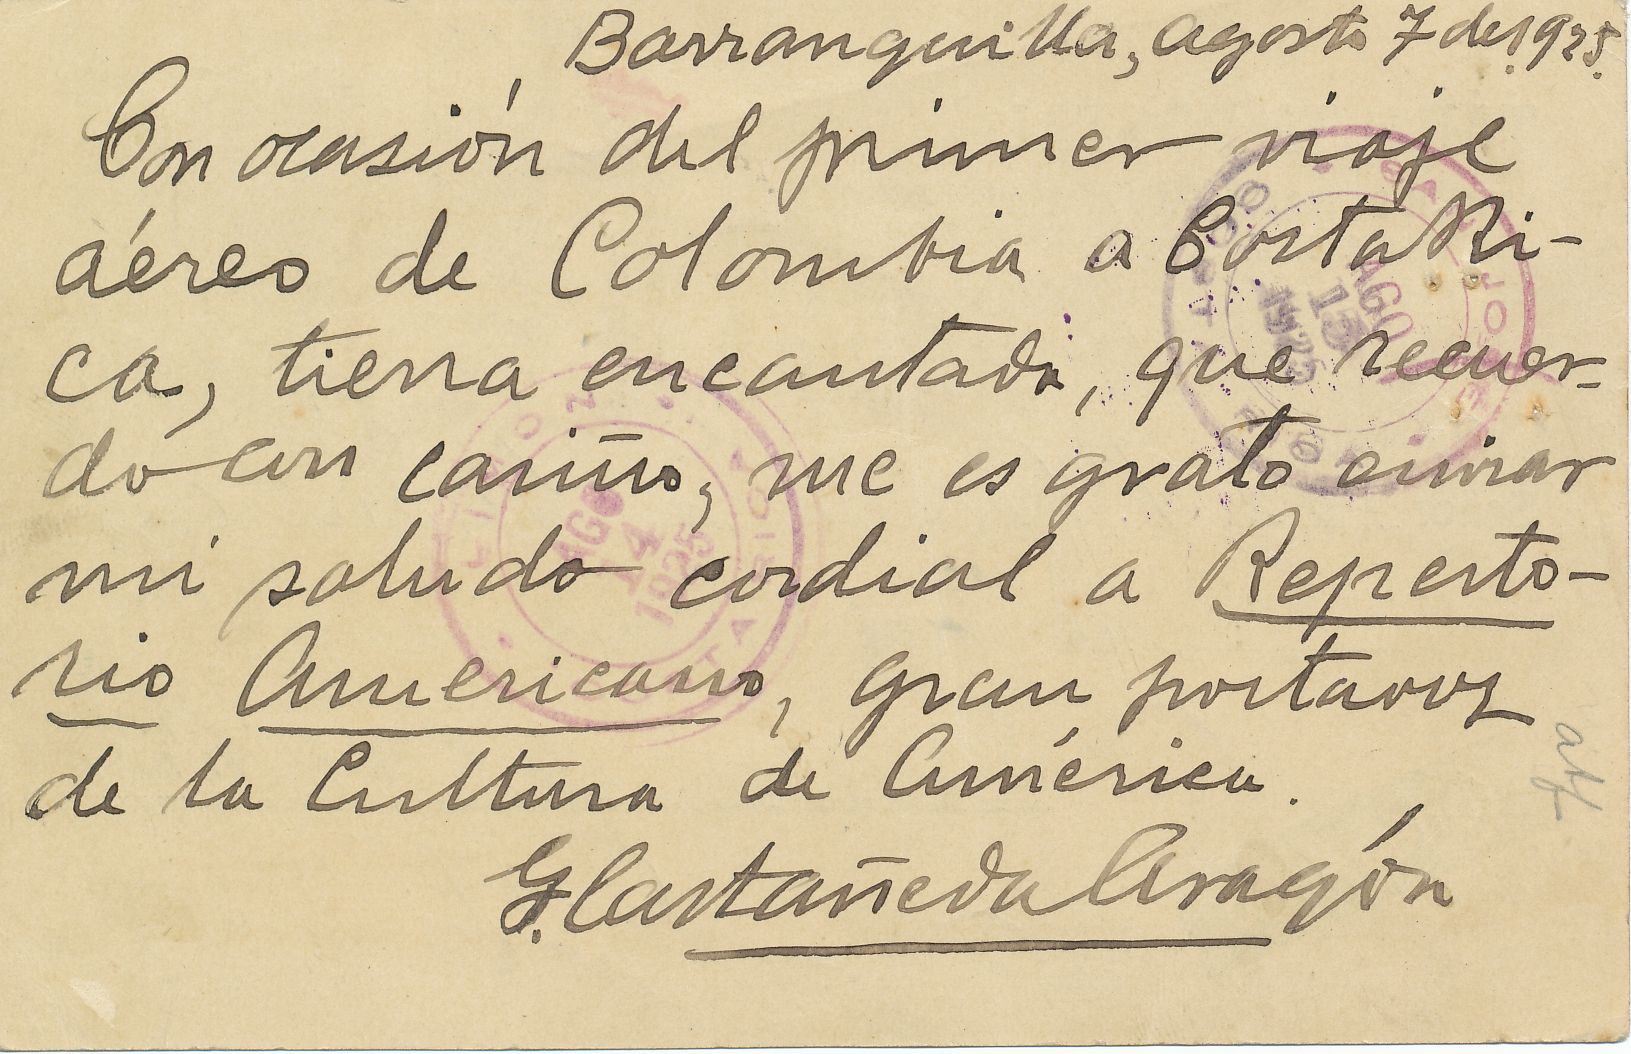 Barranquilla, agosto 7 de 1925.
Con ocasión del primer viaje
aéreo de Colombia a Costa Ri-
ca, tierra encantada, que recuer-
do con cariño, me es grato enviar
mi saludo cordial a Reperto-
rio Americano, gran portavoz
de la Cultura de América.
G. Castañeda Aragón
LIMON
AGO
14
1925
COSTA RICA
SAN JOSE
AGO
15
1925